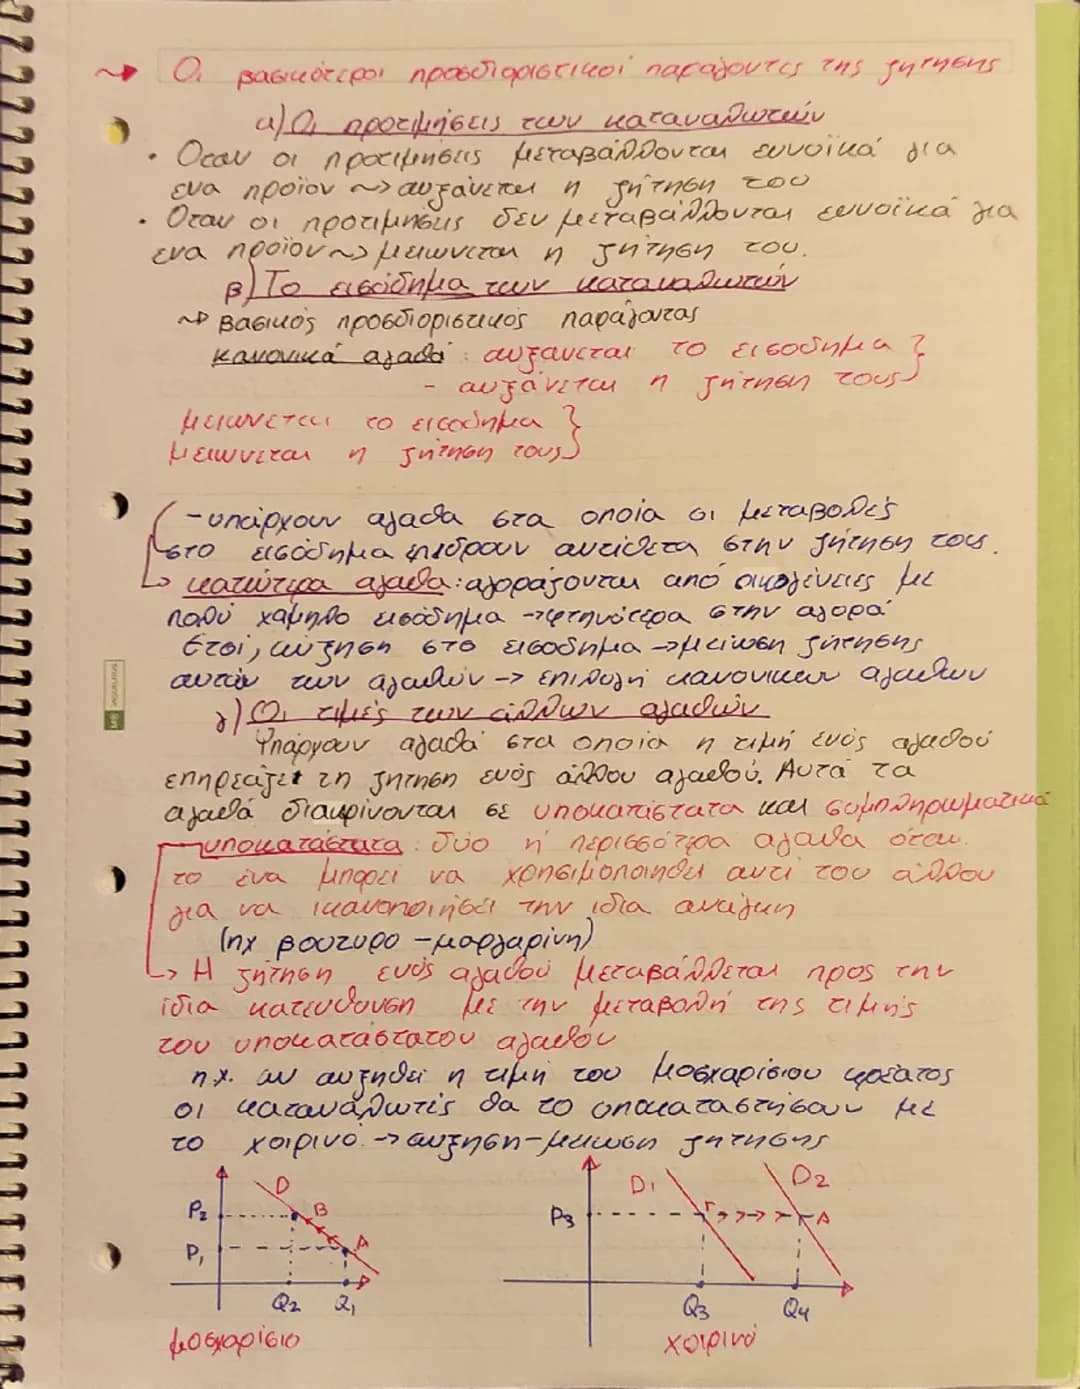 Οι βασικότεροι προσδιοριστικοί παράγοντες της ζήτησης
α) Οι προτιμήσεις των καταναλωτών
• Όταν οι προτιμήσεις μεταβάλλονται ευνοϊκά για
ένα προϊόν ~> αυξάνεται η ζήτηση του
• Όταν οι προτιμήσεις δεν μεταβάλλονται ευνοϊκά για
ένα προϊόν ~> μειώνεται η ζήτηση του.
β) Το εισόδημα των καταναλωτών
~> βασικός προσδιοριστικός παράγοντας
κανονικά αγαθά : αυξάνεται το εισόδημα }
- αυξάνεται η ζήτηση τους }
μειώνεται το εισόδημα }
μειώνεται η ζήτηση τους }
- υπάρχουν αγαθά στα οποία οι μεταβολές
στο εισόδημα επιδρουν αντίθετα στην ζήτηση τους.
-> κατώτερα αγαθά: αγοράζονται από οικογένειες με
πολύ χαμηλό εισόδημα -> φτηνότερα στην αγορά
Έτσι, αύξηση στο εισόδημα -> μείωση ζήτησης
αυτών των αγαθών -> επιλογή κανονικών αγαθών
γ) Οι τιμές των άλλων αγαθών
Υπάρχουν αγαθά στα οποία η τιμή ενός αγαθού
επηρεάζει τη ζήτηση ενός άλλου αγαθού. Αυτά τα
αγαθά διακρίνονται σε υποκατάστατα και συμπληρωματικά
υποκατάστατα : δύο ή περισσότερα αγαθα όταν
το ένα μπορεί να χρησιμοποιηθεί αντί του άλλου
για να ικανοποιήσει την ίδια ανάγκη
(πχ βούτυρο - μαργαρίνη)
-> Η ζήτηση ενός αγαθού μεταβάλλεται προς την
ίδια κατεύθυνση με την μεταβολή της τιμής
του υποκατάστατου αγαθού
π.χ. αν αυξηθεί η τιμή του μοσχαρίσιου κρέατος
οι καταναλωτές θα το υποκαταστήσουν με
το χοιρινό -> αύξηση - μείωση ζήτησης
D
P2 B
P1 A
Q2 Q1
μοσχαρίσιο
D1 D2
P3 Γ Δ
Q3 Q4
χοιρινό